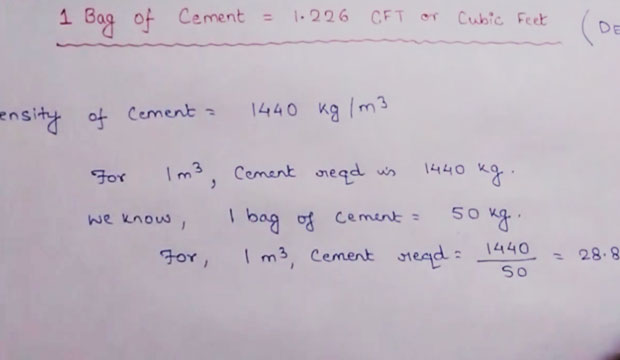 1 Bag of Cement = 1.226 CFT or Cubic Feet (DE
ensity of Cement = 1440 kg/m³
For 1m³, Cement reqd is 1440 kg.
We know, 1 bag of cement = 50 kg.
For, 1 m³, Cement reqd = 1440/50 = 28.8